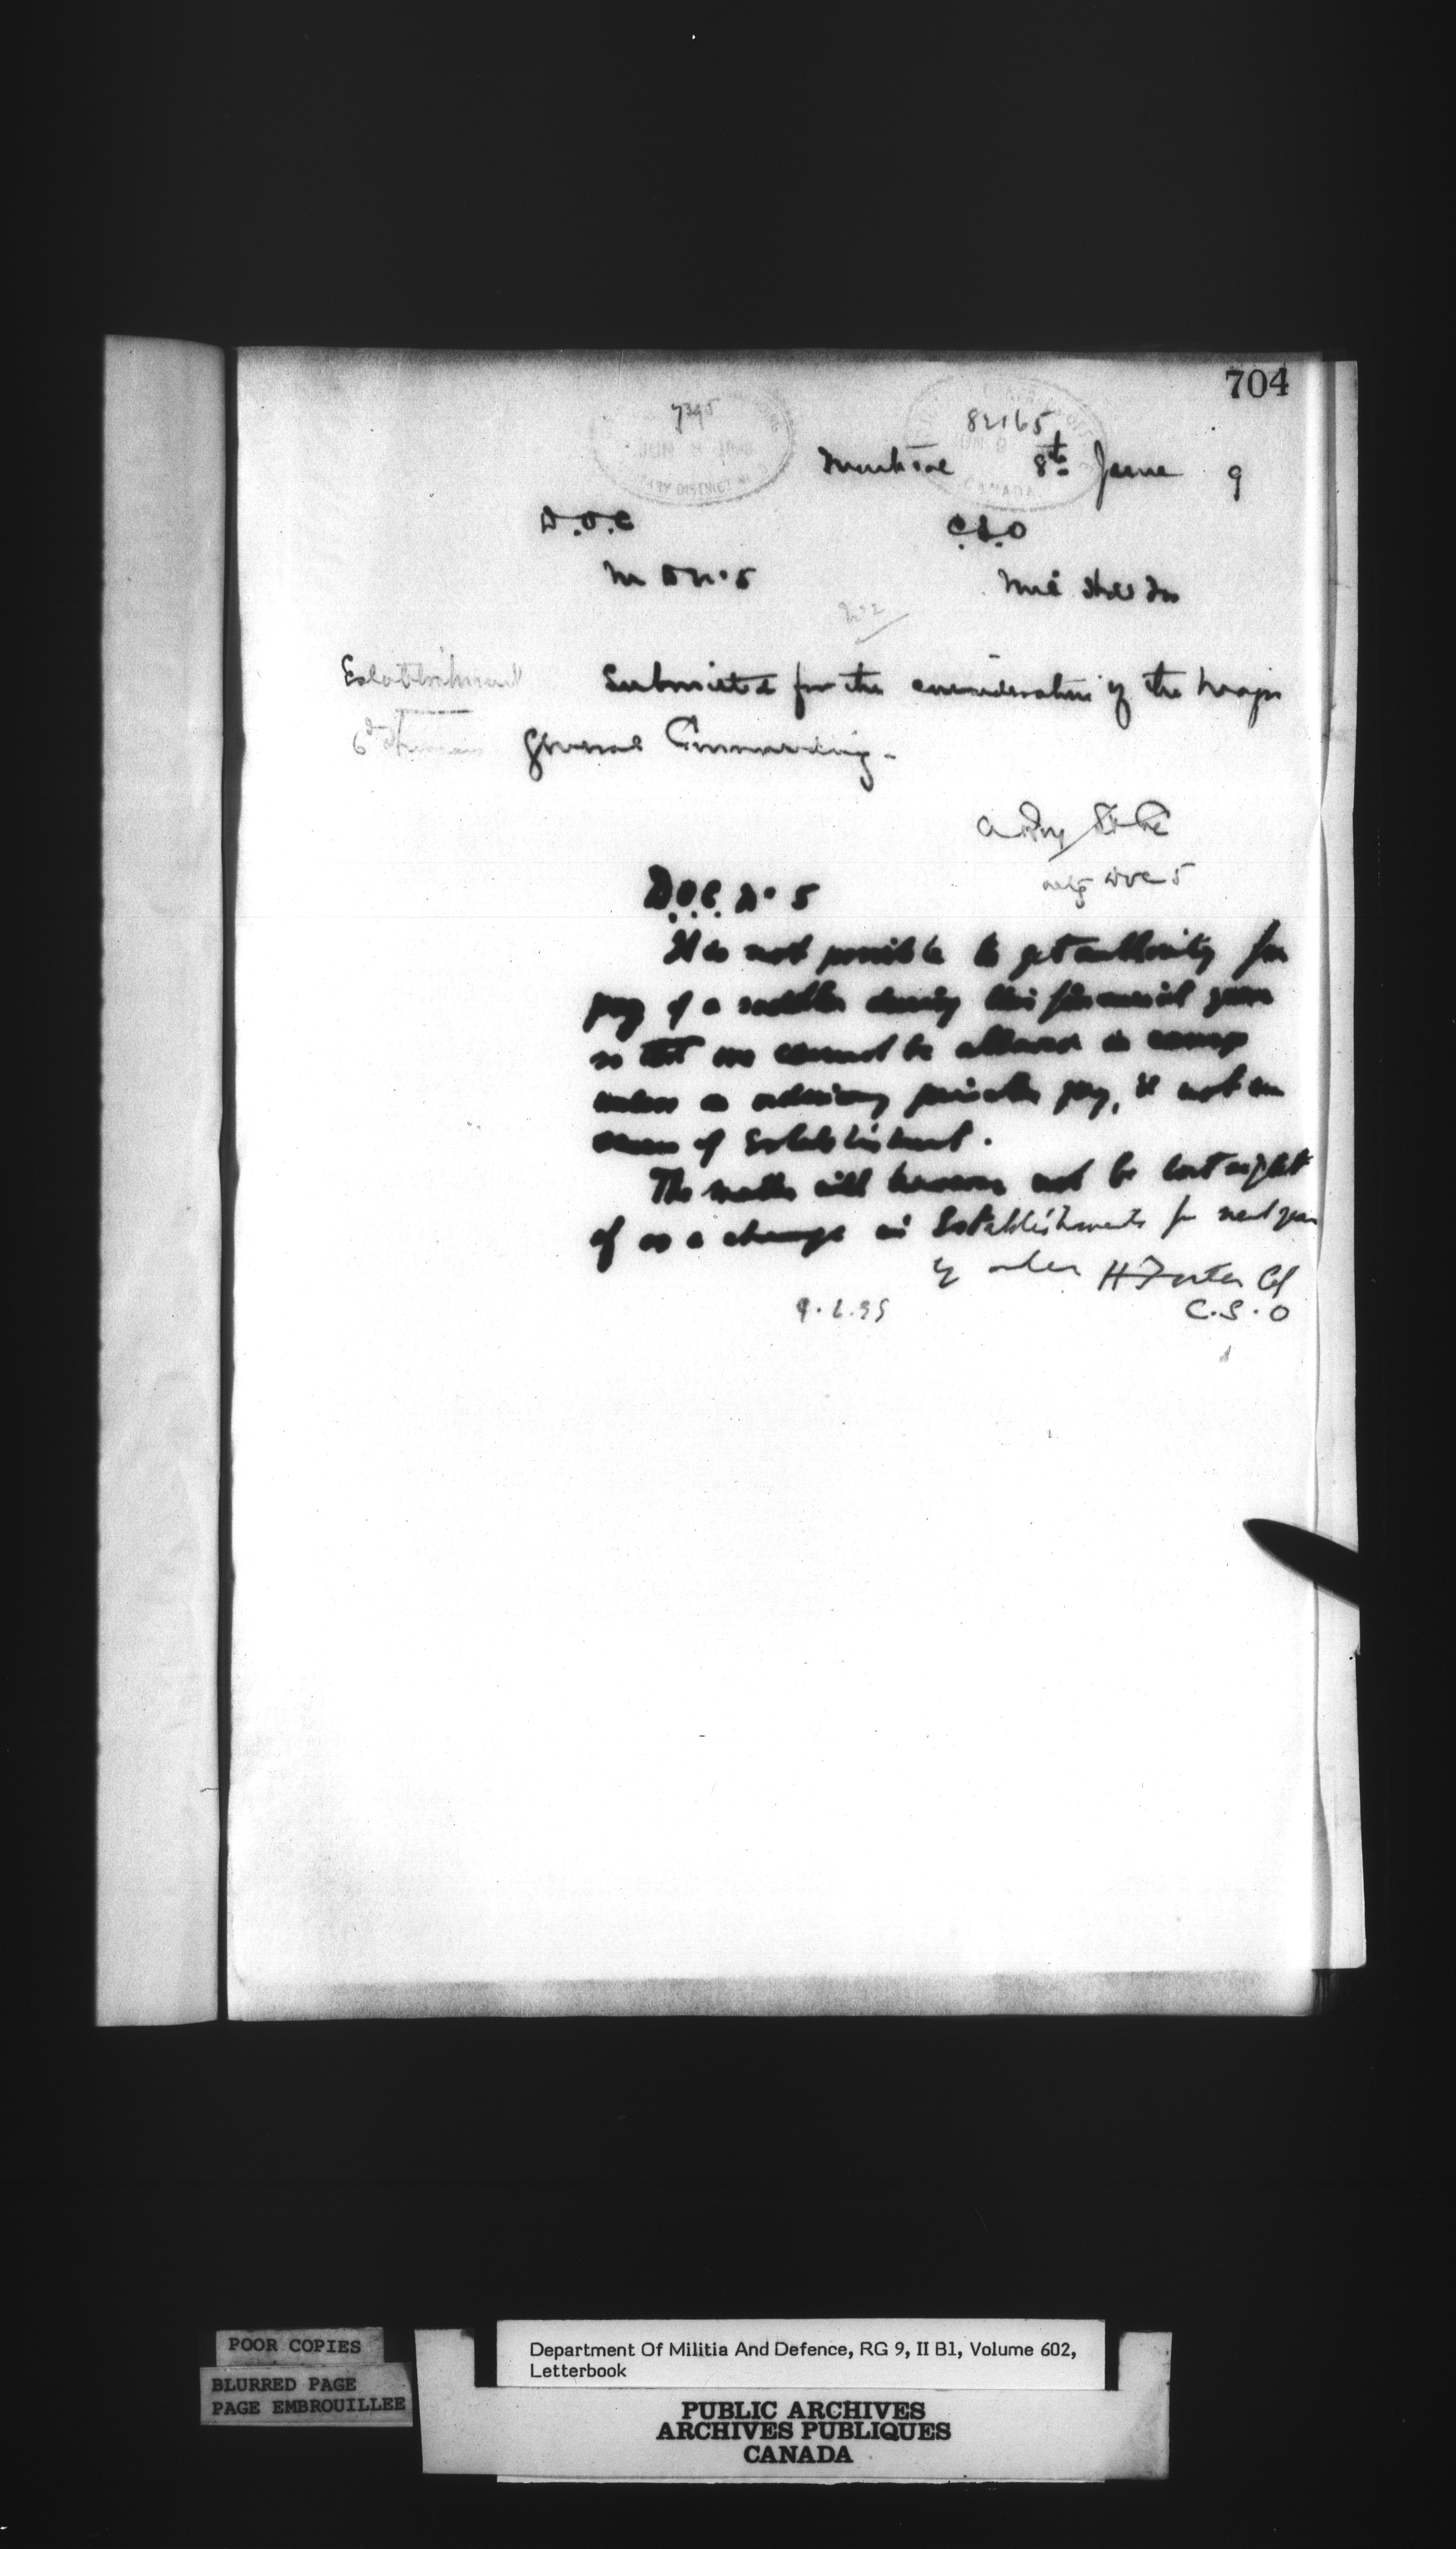 704
7395
82165
JUN 8
JUN 9
CANADA
Montreal 8th June 9
D.O.C C.S.O
M D No 5 Mil Hd Qrs
Establishment Submitted for the consideration of the Major
General Commanding -
6th Hussars
A Roy Lt Col
actg DOC 5
D.O.C. No 5
It is not possible to get authority for
pay of a saddler during this financial year
so that one cannot be allowed in camp
unless on ordinary private's pay, & not in
excess of Establishment.
The matter will however not be lost sight
of as a change in Establishments for next year
By order H Foster Col
9.6.99 C.S.O
POOR COPIES
BLURRED PAGE
PAGE EMBROUILLEE
Department Of Militia And Defence, RG 9, II B1, Volume 602,
Letterbook
PUBLIC ARCHIVES
ARCHIVES PUBLIQUES
CANADA